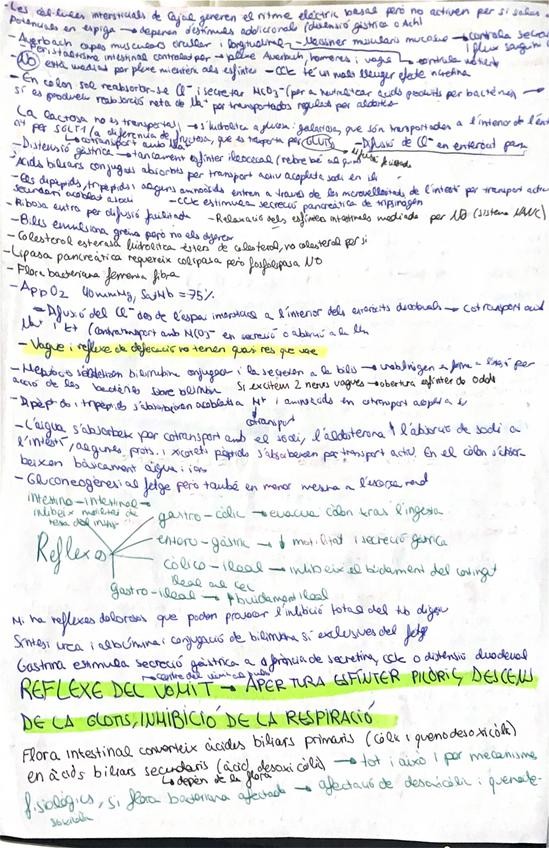 - Les cèl·lules intersticials de Cajal generen el ritme elèctric basal però no activen per si soles
potencials en espiga → depenen d'estímuls addicionals (distensió gàstrica o Ach)
- Auerbach capes musculars circular i longitudinal - Meissner muscularis mucosae → controla secreció
i flux sanguini
- Peristaltisme intestinal controlat per → plexe Auerbach, hormones i vague
NO està mediat per plexe mientèric als esfínters - CCK té un molt lleuger efecte
- En colon sol reabsorbir-se Cl⁻ i secretar HCO₃⁻ (per a neutralitzar àcids produïts per bacteries) →
si es produeix reabsorció neta de Na⁺ per transportadors regulats per aldosterona
La lactosa no es transporta! → s'hidrolitza a glucosa i galactosa, que són transportades a l'interior de l'ent
per SGLT1 (a diferència de fructosa, que es transporta per GLUT5) - Difusió de Cl⁻ en enteròcit
↳ cotransport amb Na⁺
- Distensió gàstrica → tancament esfínter ileocecal
àcids biliars conjugats absorbits per transport actiu acoplat sodi en ili
- Els dipèptids, tripèptids i alguns aminoàcids entren a través de les microvellositats de l'intestí per transport actiu
secundari acoblat a sodi - CCK estimula secreció pancreàtica de tripsinogen
- Ribosa entra per difusió facilitada - Relaxació dels esfínters intestinals mediada per NO (sistema NANC)
- Bilis emulsiona greixos però no els digereix
- Colesterol esterasa hidrolitza èsters de colesterol, no colesterol per si
- Lipasa pancreàtica requereix colipasa però fosfolipasa NO
- Flora bacteriana fermenta fibra
- A ppO2 40 mmHg, SatHb = 75%
- Difusió del Cl⁻ des de l'espai intersticial a l'interior dels enteròcits duodenals → cotransport amb
Na⁺ i K⁺ (contratransport amb HCO₃⁻ en secreció o absorció a la llum
- Vague i reflexe de defecació no tenen quasi res que veure
- Hepatòcits sintetitzen bilirubina conjugada i la segreguen a la bilis → urobilinogen es forma a l'intestí per
acció de les bactèries sobre bilirubina Si exciten 2 nervis vagues → obertura esfínter de Oddi
- Dipèptids i tripèptids s'absorbeixen acoblats a H⁺ i aminoàcids en cotransport acoplat a
cotransport
- L'aigua s'absorbeix per cotransport amb el sodi, l'aldosterona ↑ l'absorció de sodi a
l'intestí, algunes prots. i xicotets pèptids s'absorbeixen per transport actiu. En el còlon s'absor-
beixen bàsicament aigua i ions
- Gluconeogènesi al fetge però també en menor mesura a l'escorça renal
intestino-intestinal →
inhibeix motilitat de
resta del intestí
gastro-còlic → evacua còlon tras l'ingesta
Reflexos
entero-gàstric → ↓ motilitat i secreció gàstrica
còlico-ileal → inhibeix el buidament del contingut
ileal al cec
gastro-ileal → ↑ buidament ileal
Hi ha reflexes dolorosos que poden provocar l'inhibició total del tub digestiu
Síntesi urea i albúmina i conjugació de bilirubina sí exclusives del fetge
Gastrina estimula secreció gàstrica a diferència de secretina, CCK o distensió duodenal
REFLEXE DEL VOMIT → APERTURA ESFINTER PILORIC, DESCENS
DE LA GLOTIS, INHIBICIÓ DE LA RESPIRACIÓ
Flora intestinal converteix àcides biliars primaris (còlic i quenodesoxicòlic)
en àcids biliars secundaris (àcid desoxicòlic) → tot i això i per mecanismes
↳ depèn de la flora
fisiològics, si flora bacteriana afectada → afectació de desoxicòlic i quenode-
soxicòlic